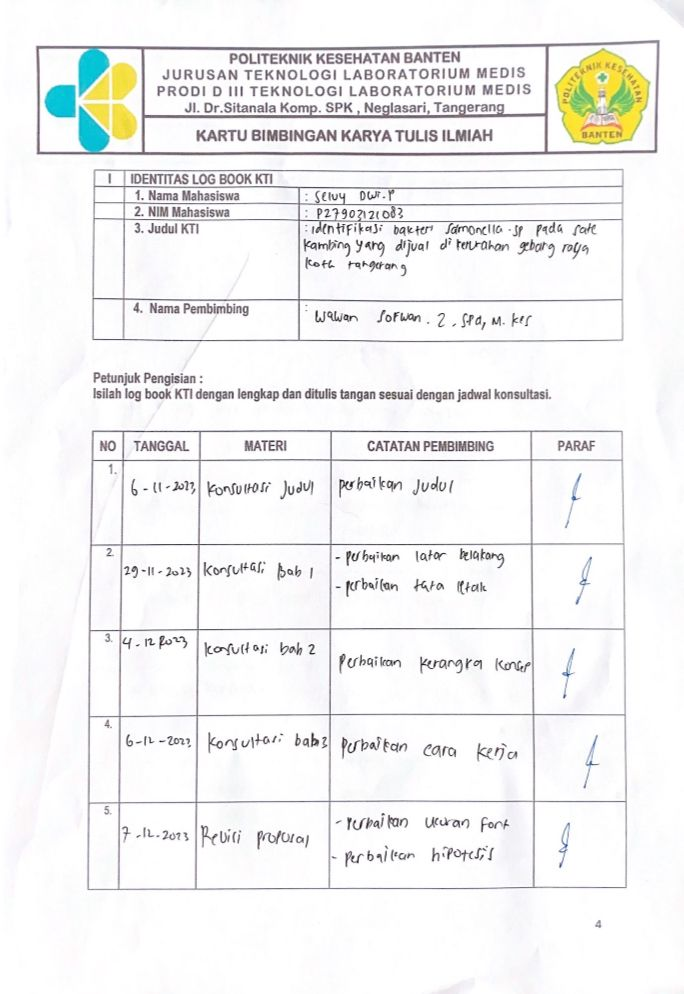 POLITEKNIK KESEHATAN BANTEN
JURUSAN TEKNOLOGI LABORATORIUM MEDIS
PRODI D III TEKNOLOGI LABORATORIUM MEDIS
Jl. Dr.Sitanala Komp. SPK , Neglasari, Tangerang
KARTU BIMBINGAN KARYA TULIS ILMIAH
POLITEKNIK KESEHATAN
BANTEN
I IDENTITAS LOG BOOK KTI
1. Nama Mahasiswa : Selvy Dwi.P
2. NIM Mahasiswa : P27903121083
3. Judul KTI : identifikasi bakteri Salmonella.sp pada sate
kambing yang dijual di kelurahan gebang raya
kota tangerang
4. Nama Pembimbing :
Wawan Sofwan. Z, SPd, M. kes
Petunjuk Pengisian :
Isilah log book KTI dengan lengkap dan ditulis tangan sesuai dengan jadwal konsultasi.
NO TANGGAL MATERI CATATAN PEMBIMBING PARAF
1. 6-11-2023 Konsultasi Judul perbaikan Judul
2. 29-11-2023 Konsultasi Bab 1 - perbaikan latar belakang
- perbaikan tata letak
3. 4-12 2023 konsultasi bab 2 perbaikan kerangka konsep
4. 6-12-2023 konsultasi bab 3 perbaikan cara kerja
5. 7-12-2023 Revisi proposal - perbaikan ukuran font
- perbaikan hipotesis
4